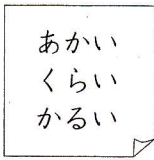 あかい
くらい
かるい